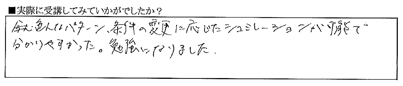 ■実際に受講してみていかがでしたか？
色んなパターン、条件の変更に応じたシュミレーションが可能で
分かりやすかった。勉強になりました.